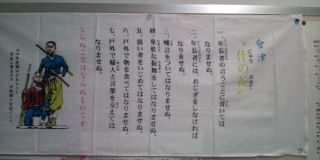 會津
什の掟
じゅう おきて
一、年長者の言うことに背いては
なりませぬ。
二、年長者には、おじぎをしなければ
なりませぬ。
三、嘘言をついてはなりませぬ。
四、卑怯な振舞をしてはなりませぬ。
五、弱い者をいじめてはなりませぬ。
六、戸外で物を食べてはなりませぬ。
七、戸外で婦人と言葉を交えては
なりませぬ。
ならぬことはならぬものです。